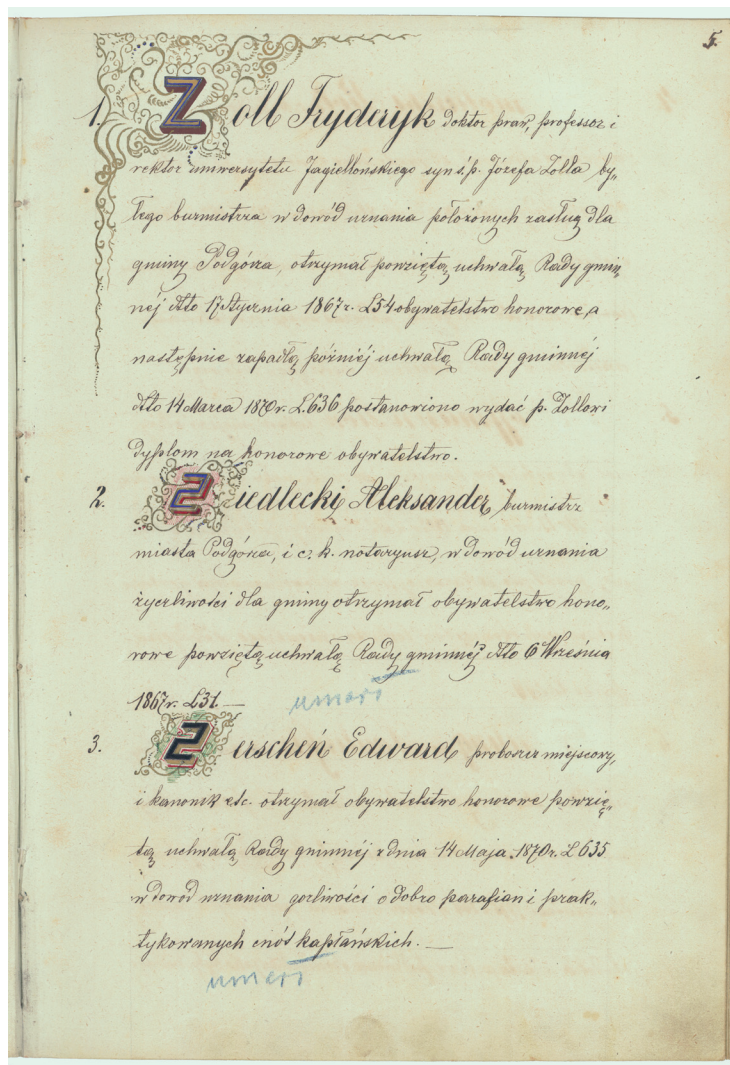 5.
1. Zoll Fryderyk doktor praw, professor i
rektor uniwersytetu Jagiellońskiego syn ś.p. Józefa Zolla by„
łego burmistrza w dowód uznania położonych zasług dla
gminy Podgórza, otrzymał powziętą uchwałą Rady gmin„
nej dto 17 Stycznia 1867 r. L54 obywatelstwo honorowe, a
następnie zapadłą późniéj uchwałą Rady gminnéj
dto 14 Marca 1870 r. L.636 postanowiono wydać p. Zollowi
dyplom na honorowe obywatelstwo.
2. Ziedlecki Aleksander burmistrz
miasta Podgórza, i c. k. notaryusz, w dowód uznania
życzliwości dla gminy otrzymał obywatelstwo hono„
rowe powziętą uchwałą Rady gminnéj dto 6 Września
1867 r. L31. —
umarł
3. Zerscheń Edward proboszcz miejscowy,
i kanonik etc. otrzymał obywatelstwo honorowe powzię„
tą uchwałą Rady gminnéj z dnia 14 Maja 1870 r. L 635
w dowód uznania gorliwości o dobro parafian i prak„
tykowanych cnót kapłańskich. —
umarł